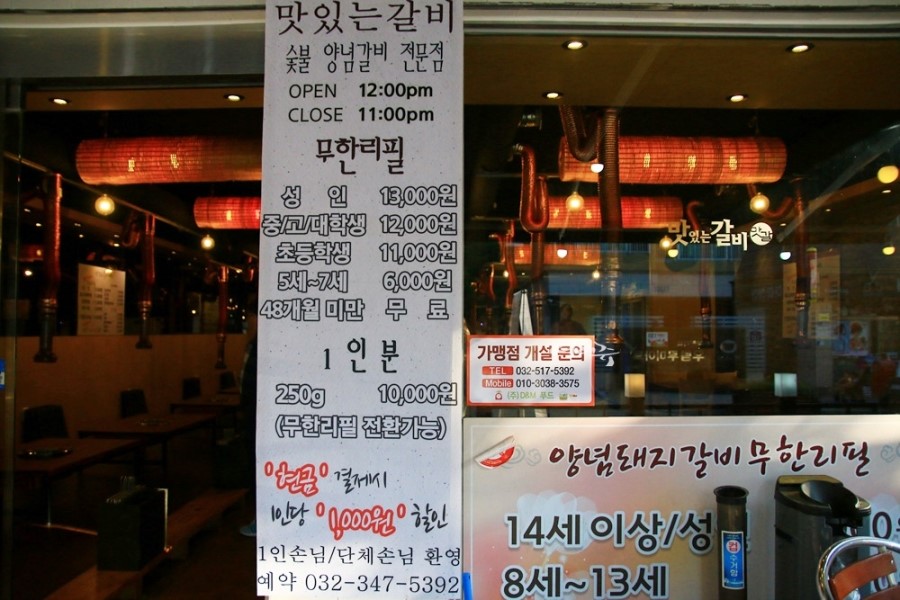 맛있는갈비
숯불 양념갈비 전문점
OPEN 12:00pm
CLOSE 11:00pm
무한리필
성 인 13,000원
중/고/대학생 12,000원
초등학생 11,000원
5세~7세 6,000원
48개월 미만 무 료
1 인 분
250g 10,000원
(무한리필 전환가능)
"현금" 결제시
1인당 "1,000원" 할인
1인손님/단체손님 환영
예약 032-347-5392
맛있는갈비 맛갈
가맹점 개설 문의
TEL 032-517-5392
Mobile 010-3038-3575
(주)D&M 푸드
양념돼지갈비무한리필
14세 이상/성
8세~13세
컵 수거함